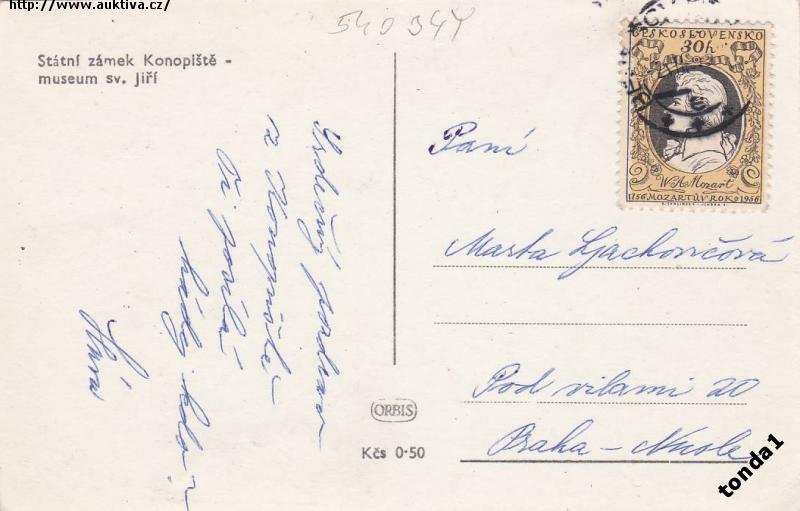 http://www.auktiva.cz/
540 344
Státní zámek Konopiště -
museum sv. Jiří
Srdečný pozdrav
z Konopiště
Ti posílá
ČESKOSLOVENSKO
30h
W.A. Mozart
1756 MOZARTŮV ROK 1956
Paní
Marta Ljachovičová
Pod vilami 20
Praha - Nusle
ORBIS
Kčs 0·50
tonda1